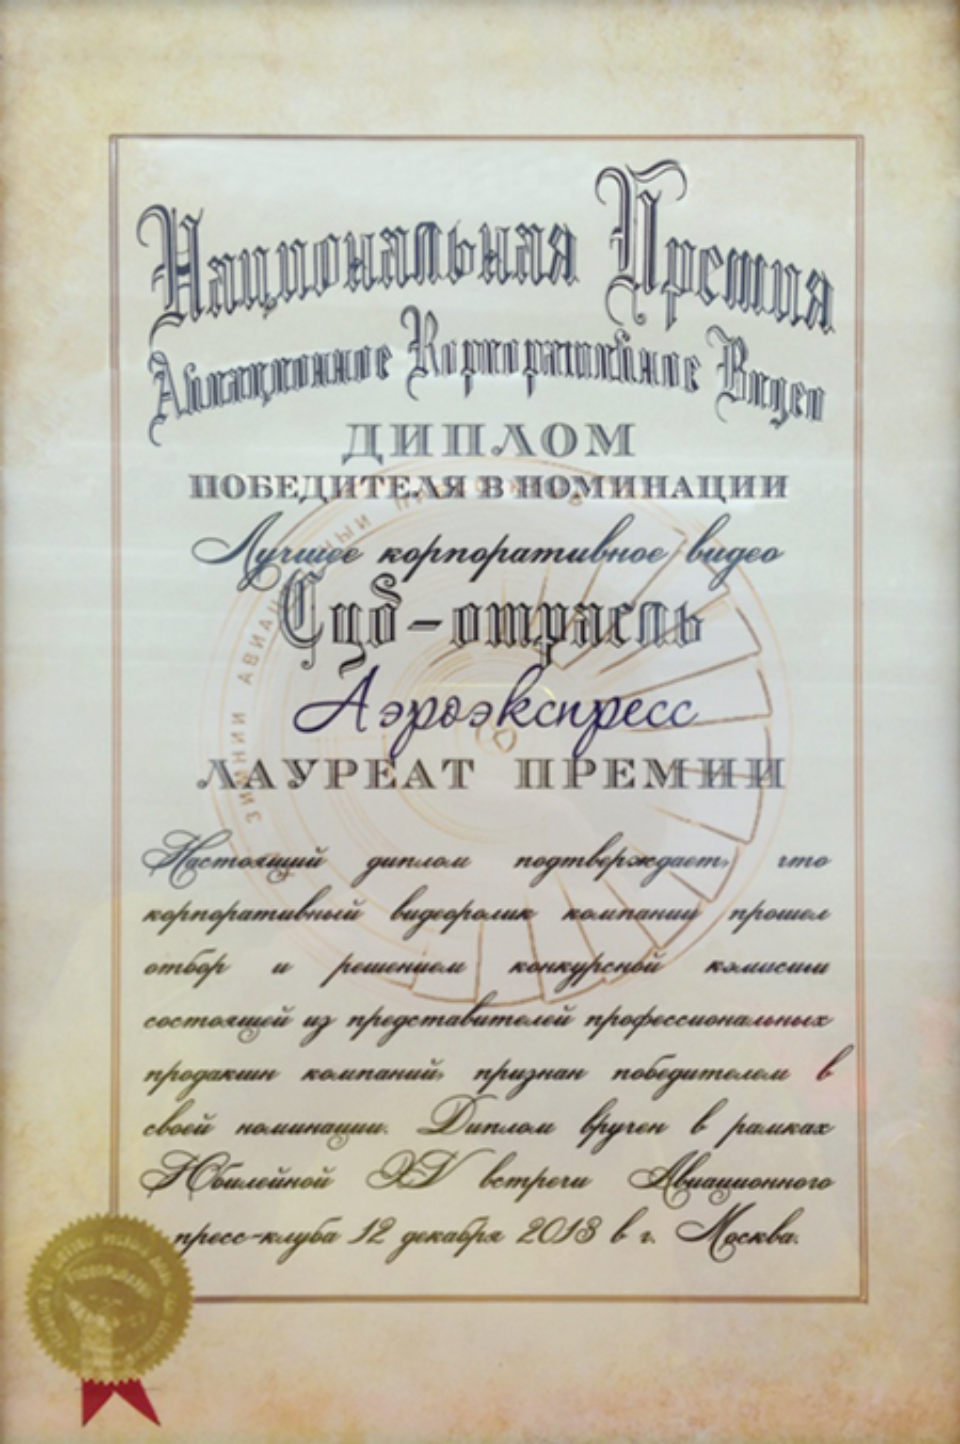 Национальная Премия
Авиационное Корпоративное Видео
ДИПЛОМ
ПОБЕДИТЕЛЯ В НОМИНАЦИИ
Лучшее корпоративное видео
Суб-отрасль
Аэроэкспресс
ЛАУРЕАТ ПРЕМИИ
Настоящий диплом подтверждает, что
корпоративный видеоролик компании прошел
отбор и решением конкурсной комиссии
состоящей из представителей профессиональных
продакшн компаний, признан победителем в
своей номинации. Диплом вручен в рамках
Юбилейной XV встречи Авиационного
пресс-клуба 12 декабря 2013 в г. Москва.
ЗИМНИЙ